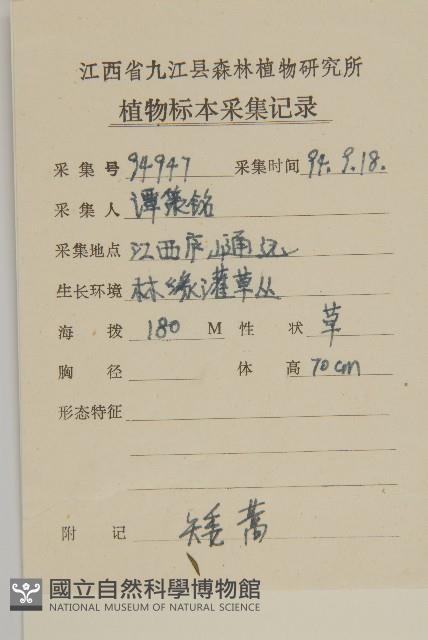 江西省九江县森林植物研究所
植物标本采集记录
采集号 94947 采集时间 94.9.18.
采集人 谭策铭
采集地点 江西庐山通远
生长环境 林缘灌草丛
海拨 180 M 性状 草
胸径 体高 70cm
形态特征
附记 矮蒿
國立自然科學博物館
NATIONAL MUSEUM OF NATURAL SCIENCE